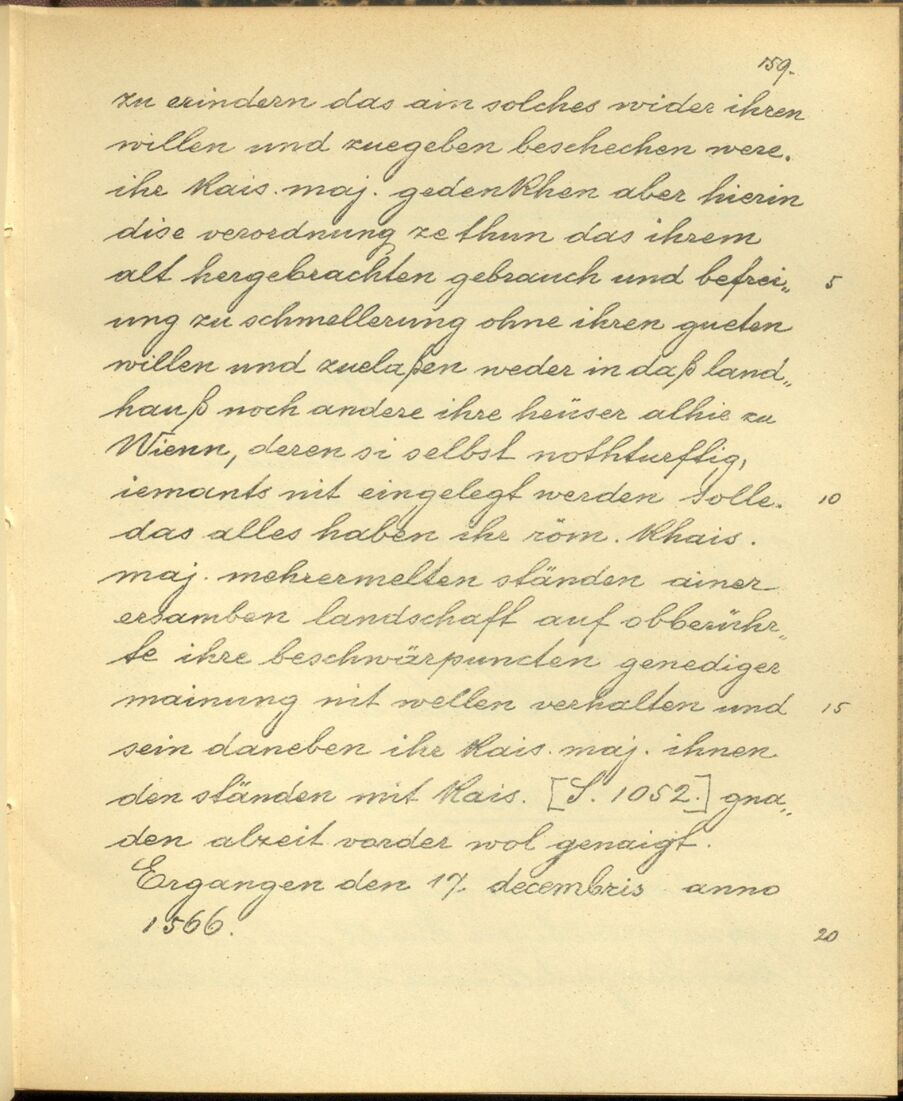 159.
zu erindern das ain solches wider ihren
willen und zuegeben beschechen were.
ihr kais. maj. gedenkhen aber hierin
dise verordnung ze thun das ihrem
alt hergebrachten gebrauch und befrei„ 5
ung zu schmellerung ohne ihren gueten
willen und zuelaßen weder in daß land„
hauß noch andere ihre heüser alhie zu
Wienn, deren si selbst nothturftig,
iemants nit eingelegt werden solle. 10
das alles haben ihr röm. khais.
maj. mehrermelten ständen ainer
ersamben landschaft auf obberühr„
te ihre beschwärpuncten genediger
mainung nit wellen verhalten und 15
sein daneben ihr kais. maj. ihnen
den ständen mit kais. [S. 1052.] gna„
den alzeit vorder wol genaigt.
Ergangen den 17. decembris anno
1566. 20